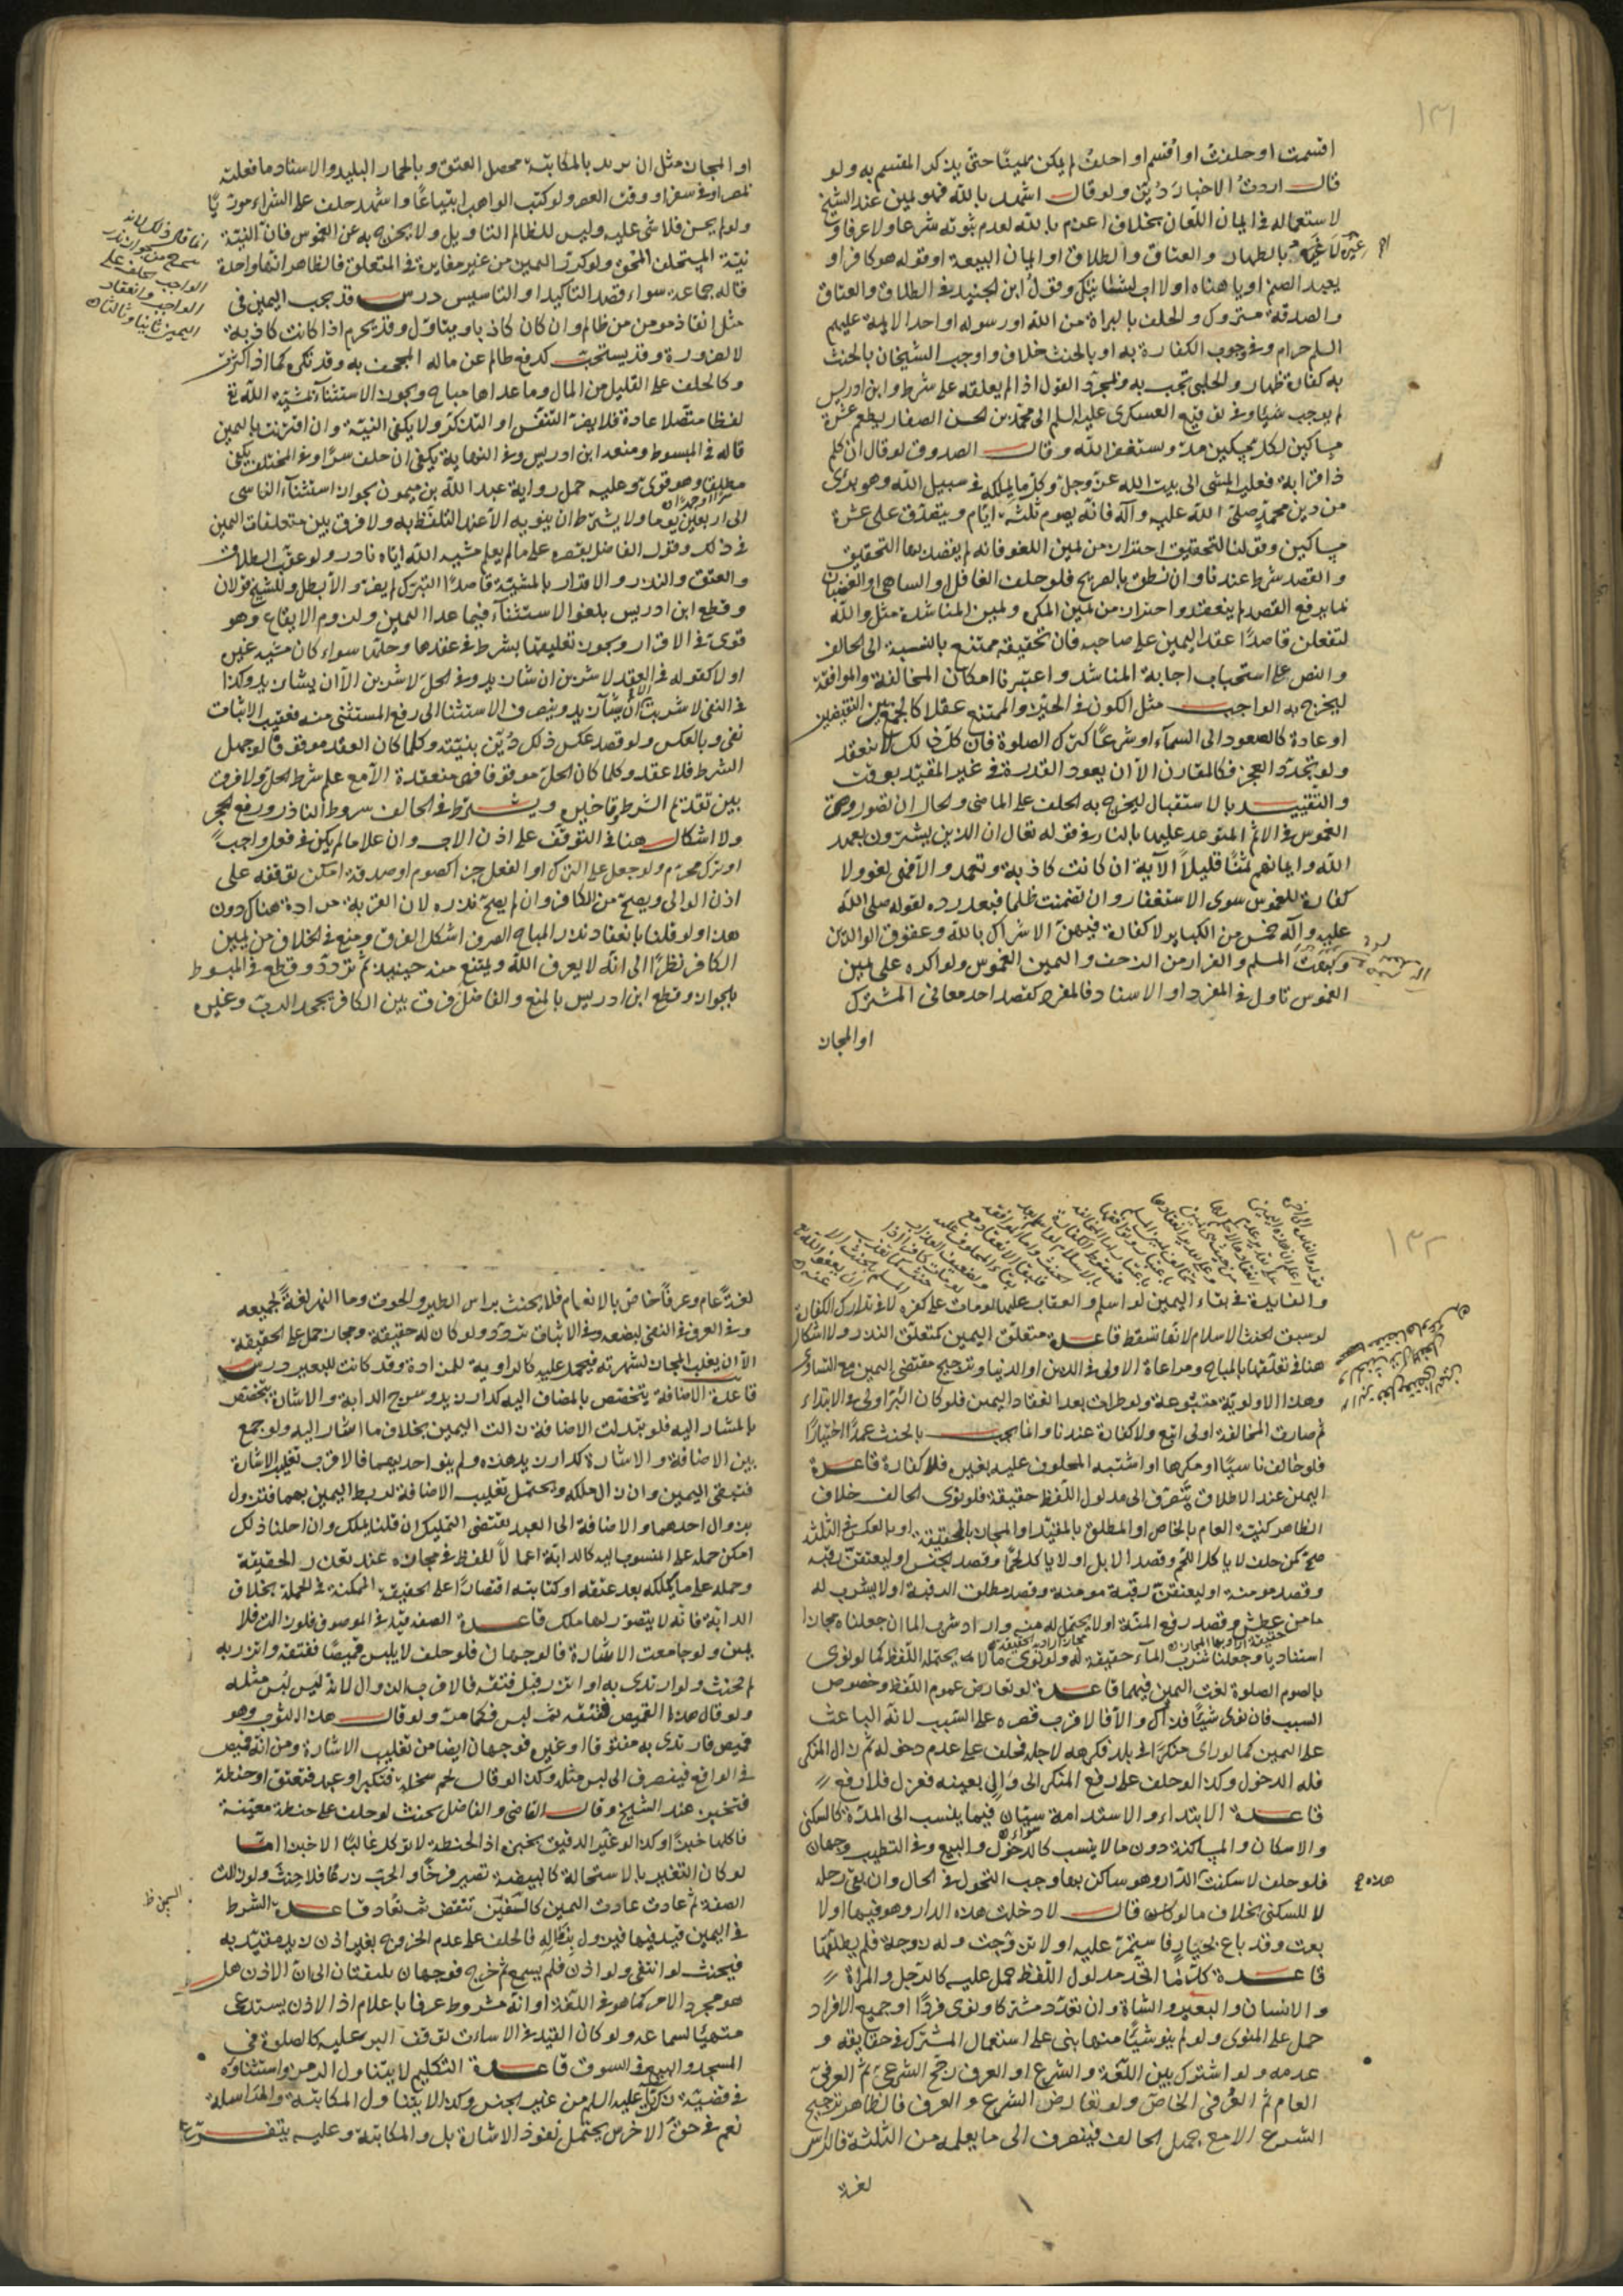 ١٣١
اقسمت او حلفت او اُقسم او احلف لم يكن يمينًا حتى يذكر المقسم به ولو
قال اردت الاخبار دُيّن ولو قال اشهد بالله فهو يمين عند الشيخ
لاستعماله في ايمان اللعان بخلاف اعزم بالله لعدم ثبوته شرعا ولا عرفا و
بالظهار والعتاق والطلاق او ايمان البيعة او قوله هو كافر او
يعبد الصنم او يا هناه او لا اب لشانيك وقول ابن الجنيد في الطلاق والعتاق
والصدقة متروك والحلف بالبراة من الله او رسوله او احد الايمة عليهم
السلم حرام وفي وجوب الكفارة به او بالحنث خلاف واوجب الشيخان بالحنث
به كفارة ظهار والحلبي تجب به وبمجرد القول اذا لم يعلقه على شرط وابن ادريس
لم يوجب شيئا وفي توقيع العسكري عليه السلم الى محمد بن الحسن الصفار يطعم عشرة
مساكين لكل مسكين مد ويستغفر الله وقال الصدوق لو قال ان كلم
ذا قرابة فعليه المشي الى بيت الله عز وجل وكل ما يملكه في سبيل الله وهو برئ
من دين محمد صلى الله عليه وآله فانه يصوم ثلثة ايام ويتصدق على عشرة
مساكين وقولنا للتحقيق احتراز من يمين اللغو فانه لم يقصد بها التحقيق
والقصد شرط عندنا وان نطق بالصريح فلو حلف الغافل او الساهي او الغضبان
بما يرفع القصد لم ينعقد واحتراز من يمين المكره ويمين المناشدة مثل والله
لتفعلن قاصدًا عقد اليمين على صاحبه فان تحقيقه ممتنع بالنسبة الى الحالف
والنص على استحباب اجابة المناشد واعتبرنا امكان المخالفة والموافقة
ليخرج به الواجب مثل الكون في الحيّز والممتنع عقلا كالجمع بين النقيضين
او عادة كالصعود الى السماء او شرعًا كترك الصلوة فان كل ذلك لا ينعقد
ولو تجدد العجز فكالمقارن الا ان يعود القدرة في غير المقيد بوقت
والتقييد بالاستقبال ليخرج به الحلف على الماضي والحال ان تصور وهي
الغموس في الاثم المتوعد عليها بالنار في قوله تعالى ان الذين يشترون بعهد
الله وايمانهم ثمنًا قليلاً الآية ان كانت كاذبة وتعمد والا فهي لغو ولا
كفارة للغموس سوى الاستغفار وان تضمنت ظلما فبعد رده لقوله صلى الله
عليه وآله خمس من الكباير لا كفارة فيهن الاشراك بالله وعقوق الوالدين
وبهت المسلم والفرار من الزحف واليمين الغموس ولو اكره على يمين
الغموس تاول في المفرد او الاسناد فالمفرد كقصد احد معاني المشترك
او المجاز
او المجاز مثل ان يريد بالمكاتبة محصل العتق وبالحمار البليد والاسناد ما فعلته
بمصر او في سفر او وقت العصر ولو كتب الواهب ابتياعًا واشهد حلف على الشراء مورّيًا
ولو لم يحسن فلا شي عليه وليس للظالم التاويل ولا يخرج به عن الغموس فان النيّة
نيّة المستحلف المحق ولو كرر اليمين من غير مغايرة في المتعلق فالظاهر انها واحدة
قاله جماعة سواء قصد التأكيد او التاسيس درس قد يجب اليمين في
مثل انقاذ مومن من ظالم وان كان كاذبا ويتاول وقد يحرم اذا كانت كاذبة
لا لضرورة وقد يستحب كدفع ظالم عن ماله المجحف به وقد تكره كما اذا كثرت
وكالحلف على القليل من المال وما عداها مباح ويجوز الاستثناء بمشية الله تع
لفظا متصلا عادة فلا يضر التنفس او التذكر ولا يكفي النيّة وان اقترنت باليمين
قاله في المبسوط ومنعه ابن ادريس وفي النهاية يكفي ان حلف سرًا وفي المختلف يكفي
مطلقا وهو قوي وعليه حمل رواية عبد الله بن ميمون بجواز استثناء الناسي
الى اربعين يوما ولا يشترط ان ينويه الا عند التلفظ به ولا فرق بين متعلقات اليمين
في ذلك وقول الفاضل يقصره على ما لم يعلم مشية الله اياه نادر ولو عقب الطلاق
والعتق والنذر والاقرار بالمشيّة قاصدًا التبرك لم يضر والا بطل وللشيخ قولان
وقطع ابن ادريس بلغو الاستثناء فيما عدا اليمين ولزوم الايقاع وهو
قوي في الاقرار ويجوز تعليقها بشرط في عقدها وحلّها سواء كان مشية غيره
او لا كقوله في العقد لاشربن ان شاء زيد وفي الحل لاشربن الا ان يشاء زيد وكذا
في النفي لا شربت الا ان يشاء زيد وينصرف الاستثنا الى رفع المستثنى منه فعقيب الاثبات
نفي وبالعكس ولو قصد عكس ذلك دُيّن بنيّته وكلما كان العقد موقوفا لو جهل
الشرط فلا عقد وكلما كان الحل موقوفا فهي منعقدة الا مع علم شرط الحل ولا فرق
بين تقدم الشرط وتاخيره ويشترط في الحالف شروط الناذر ورفع الحجر
ولا اشكال هنا في التوقف على اذن الاب وان علا ما لم يكن في فعل واجب
او ترك محرم ولو جعل على الترك او الفعل جزاء كصوم او صدقة امكن توقفه على
اذن الوالي ويصح من الكافر وان لم يصح نذره لان القربة مرادة هناك دون
هذا ولو قلنا بانعقاد نذر المباح الصرف اشكل الفرق ومنع في الخلاف من يمين
الكافر نظرًا الى انه لا يعرف الله ويمتنع منه حينيذ ثم تردّد وقطع في المبسوط
بالجواز وقطع ابن ادريس بالمنع والفاضل فرق بين الكافر بجحد الربّ وغيره
١٣٢
والفايدة في بقاء اليمين لو اسلم والعقاب عليها لو مات على كفره لا في تدارك الكفارة
لو سبق الحنث الاسلام لانها تسقط قاعدة متعلق اليمين كمتعلق النذر ولا اشكال
هنا في تعلقها بالمباح ومراعاة الاولى في الدين او الدنيا وترجيح مقتضى اليمين مع التساوي
وهذه الاولوية متبوعة ولو طرات بعد انعقاد اليمين فلو كان البرّ اولى في الابتداء
ثم صارت المخالفة اولى اتبع ولا كفارة عندنا وانما يجب بالحنث عمدًا اختيارًا
فلو خالف ناسيًا او مكرها او اشتبه المحلوف عليه بغيره فلا كفارة قاعدة
اليمين عند الاطلاق يتصرف الى مدلول اللفظ حقيقة فلو نوى الحالف خلاف
الظاهر كنية العام بالخاص او المطلق بالمقيد او المجاز بالحقيقة او بالعكس في الثلثة
صح كمن حلف لا ياكل اللحم وقصد الابل او لا ياكل لحمًا وقصد الجنس او ليعتقن رقبه
وقصد مومنة او ليعتقن رقبة مومنة وقصد مطلق الرقبة او لا يشرب له
ماء من عطش وقصد رفع المنة او لا يحتمل له منه واراد شرب الما ان جعلناه مجازا
اسناديا وجعلنا شرب الماء حقيقة له ولو نوى ما لا يحتمله اللفظ كما لو نوى
بالصوم الصلوة لغت اليمين فيهما قاعدة لو تعارض عموم اللفظ وخصوص
السبب فان نوى شيئًا فذاك والا فالاقرب قصره على السبب لانه الباعث
على اليمين كما لو راى منكرًا في بلد فكرهه لاجله فحلف على عدم دخوله ثم زال المنكر
فله الدخول وكذا لو حلف على رفع المنكر الى والٍ بعينه فعزل فلا رفع
قاعدة الابتداء والاستدامة سيّان فيما ينسب الى المدة كالسكنى
والاسكان والمساكنة دون ما لا ينسب كالدخول والبيع وفي التطيب وجهان
فلو حلف لا سكنت الدار وهو ساكن بها وجب التحول في الحال وان بقي رحله
لا للسكنى بخلاف ما لو قال لا دخلت هذه الدار وهو فيها او لا
بعت وقد باع بخيار فاستمر عليه او لا تزوجت وله زوجة فلم يطلقها
قاعدة كلما اتحد مدلول اللفظ حمل عليه كالرجل والمراة
والانسان والبعير والشاة وان تعدد مشتركا ونوى فردًا او جميع الافراد
حمل على المنوى ولو لم ينو شيئًا منها بنى على استعمال المشترك في حقايقه و
عدمه ولو اشترك بين اللغة والشرع او العرف رجّح الشرعي ثم العرفي
العام ثم العرفي الخاص ولو تعارض الشرع والعرف فالظاهر ترجيح
الشرع الا مع جهل الحالف فينصرف الى ما يعلمه من الثلثة فالراس
لغة
لغة عام وعرفاً خاص بالانعام فلا يحنث براس الطير والحوت وماء النهر لغة لجميعه
وفي العرف في النفي لبعضه وفي الاثبات تردد ولو كان له حقيقة ومجاز حمل على الحقيقة
الا ان يغلب المجاز لشهرته فيحمل عليه كالراوية للمزادة وقد كانت للبعير درس
قاعدة الاضافة يتخصص بالمضاف اليه كدار زيد وسرج الدابة والاشارة يتخصص
بالمشار اليه فلو تبدلت الاضافة زالت اليمين بخلاف ما اشار اليه ولو جمع
بين الاضافة والاشارة كدار زيد هذه ولم ينو احديهما فالاقرب تغليب الاشارة
فتبقى اليمين وان زال ملكه ويحتمل تغليب الاضافة لربط اليمين بهما فتزول
بزوال احدهما والاضافة الى العبد يقتضي التمليك ان قلنا بملكه وان احلنا ذلك
امكن حمله على المنسوب اليه كالدابة اعمالاً للفظ في مجازه عند تعذر الحقيقة
وحمله على ما يملكه بعد عتقه او كتابته اقتصارًا على الحقيقة الممكنة في الجملة بخلاف
الدابة فانه لا يتصور لها ملك قاعدة الصفة قيد في الموصوف فلو زالت فلا
يمين ولو جامعت الاشارة فالوجهان فلو حلف لا يلبس قميصًا ففتقه واتزر به
لم يحنث ولو ارتدى به او اتزر قبل فتقه فالاقرب الزوال لانه ليس لبس مثله
ولو قال هذا القميص ففتقه ثم لبس فكما مرّ ولو قال هذا الثوب وهو
قميص فارتدى به مفتوقا او غيره فوجهان ايضا من تغليب الاشارة ومن انه قميص
في الواقع فينصرف الى لبس مثله وكذا لو قال لحم سخلة فتكبر او عبد فتعتق او حنطة
فتخبز عند الشيخ وقال القاضي والفاضل يحنث لو حلف على حنطة معيّنة
فاكلها خبزًا وكذا لو غيّر الدقيق بخبزه اذ الحنطة لا توكل غالبًا الا خبزا امّا
لو كان التغيير بالاستحالة كالبيضة تصير فرخًا والحب زرعًا فلا حنث ولو زالت
الصفة ثم عادت عادت اليمين كالسفينة تنقض ثم تعاد قاعدة الشرط
في اليمين قيد فيها فيزول بزواله فالحلف على عدم الخروج بغير اذن زيد مقيّد به
فيحنث لو انتفى ولو اذن فلم يسمع ثم خرج فوجهان يلتفتان الى ان الاذن هل
هو مجرد الامر كما هو في اللغة او انه مشروط عرفا باعلام اذ الاذن يستدعي
متهيئا لسماعه ولو كان القيد في الاثبات توقف البر عليه كالصلوة في
المسجد والبيع في السوق قاعدة التكليم لا يتناول الرمز واستثناؤه
في قضية زكريا عليه السلم من غير الجنس وكذا لا يتناول المكاتبة والمراسلة
نعم في حق الاخرس يحتمل نفوذ الاشارة بل والمكاتبة وعليه يتفرع